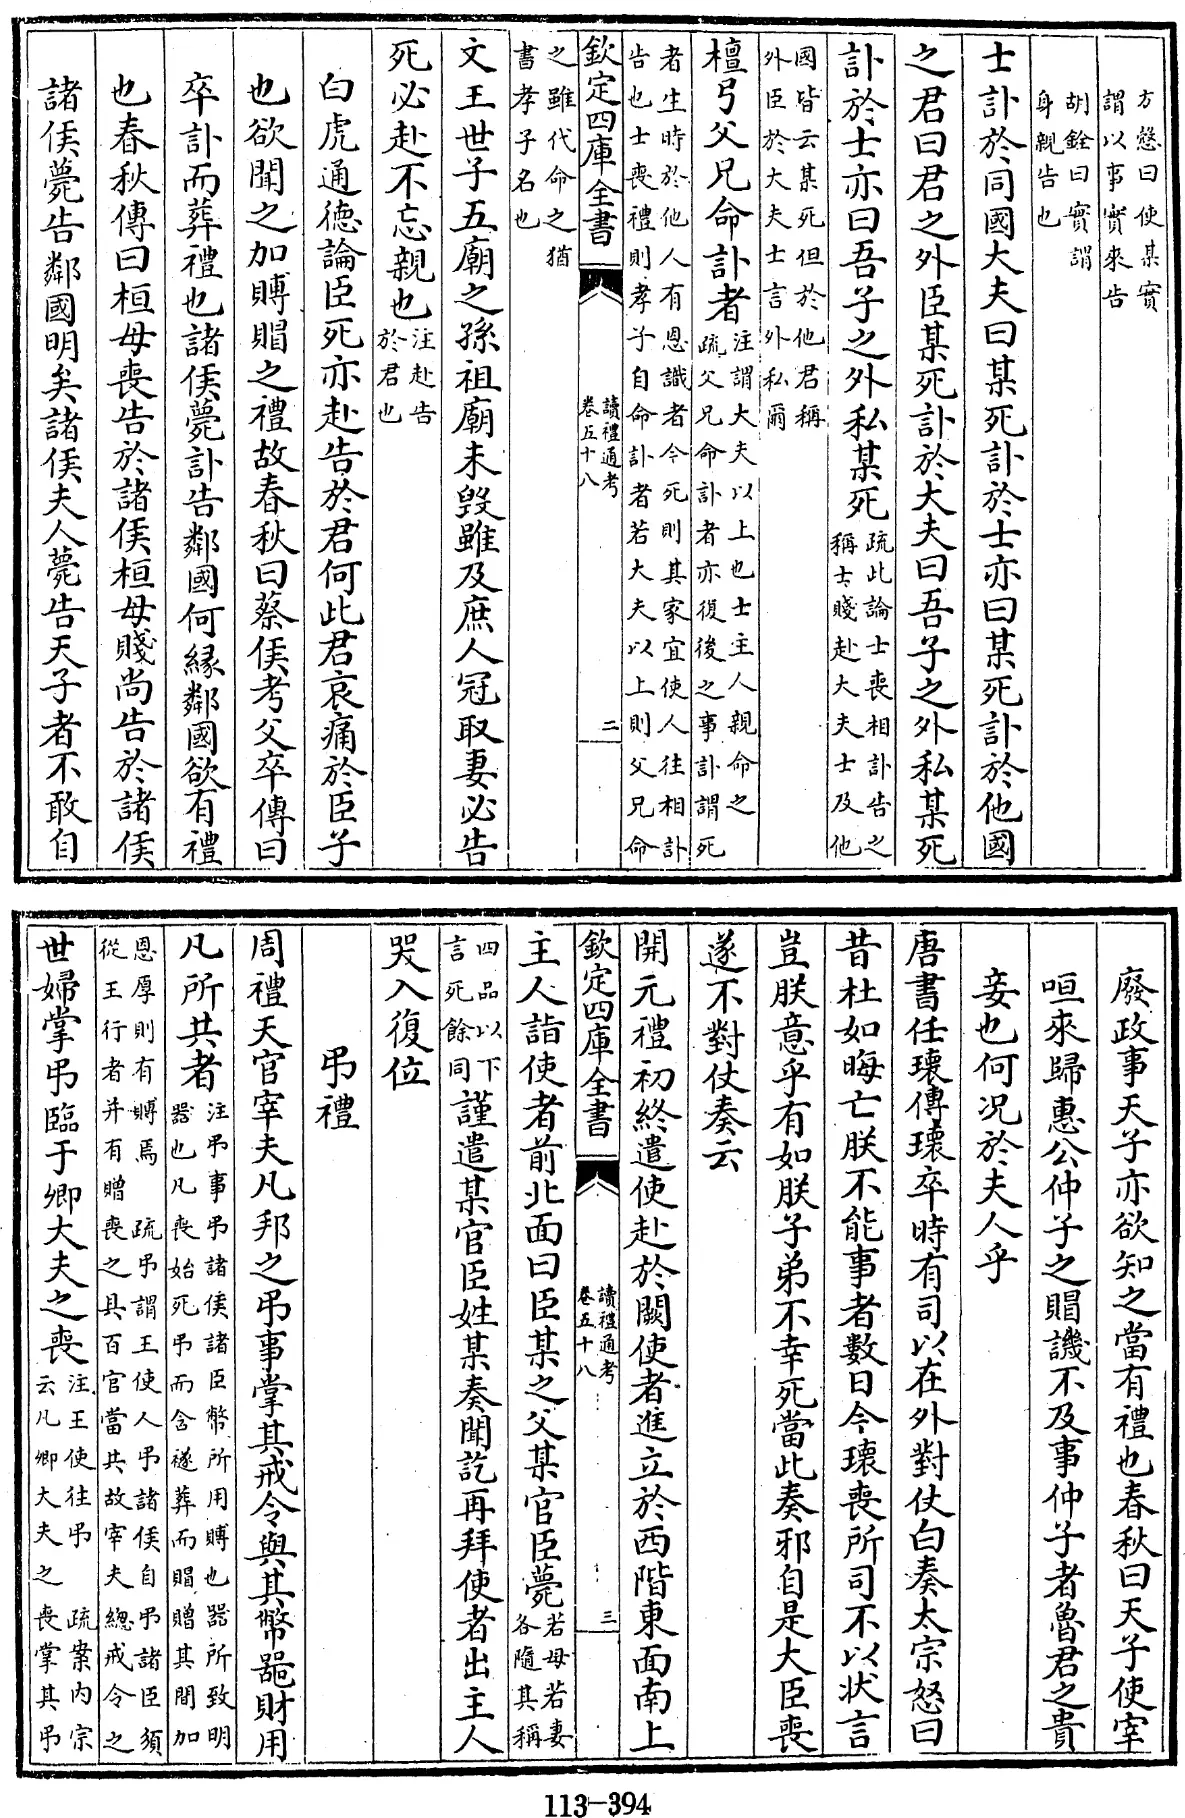 方慤曰使某實
謂以事實來告
胡銓曰實謂
身親告也
士訃於同國大夫曰某死訃於士亦曰某死訃於他國
之君曰君之外臣某死訃於大夫曰吾子之外私某死
訃於士亦曰吾子之外私某死疏此論士喪相訃告之稱士賤赴大夫士及他
國皆云某死但於他君稱
外臣於大夫士言外私爾
檀弓父兄命訃者注謂大夫以上也士主人親命之疏父兄命訃者亦復後之事訃謂死
者生時於他人有恩識者今死則其家宜使人往相訃
告也士喪禮則孝子自命訃者若大夫以上則父兄命
欽定四庫全書
讀禮通考
卷五十八
二
之雖代命之猶
書孝子名也
文王世子五廟之孫祖廟未毀雖及庶人冠取妻必告
死必赴不忘親也注赴告於君也
白虎通德論臣死亦赴告於君何此君哀痛於臣子
也欲聞之加賻賵之禮故春秋曰蔡侯考父卒傳曰
卒訃而葬禮也諸侯薨訃告鄰國何緣鄰國欲有禮
也春秋傳曰桓母喪告於諸侯桓母賤尚告於諸侯
諸侯薨告鄰國明矣諸侯夫人薨告天子者不敢自
廢政事天子亦欲知之當有禮也春秋曰天子使宰
咺來歸惠公仲子之賵譏不及事仲子者魯君之貴
妾也何況於夫人乎
唐書任瓌傳瓌卒時有司以在外對仗白奏太宗怒曰
昔杜如晦亡朕不能事者數日今瓌喪所司不以狀言
豈朕意乎有如朕子弟不幸死當此奏邪自是大臣喪
遂不對仗奏云
開元禮初終遣使赴於闕使者進立於西階東面南上
欽定四庫全書
讀禮通考
卷五十八
三
主人詣使者前北面曰臣某之父某官臣薨若母若妻各隨其稱
四品以下言死餘同謹遣某官臣姓某奏聞訖再拜使者出主人
哭入復位
弔禮
周禮天官宰夫凡邦之弔事掌其戒令與其幣器財用
凡所共者注弔事弔諸侯諸臣幣所用賻也器所致明器也凡喪始死弔而含襚葬而賵贈其間加
恩厚則有賻焉 疏弔謂王使人弔諸侯自弔諸臣須
從王行者并有贈喪之具百官當共故宰夫總戒令之
世婦掌弔臨于卿大夫之喪注王使往弔 疏案內宗云凡卿大夫之喪掌其弔
113-394